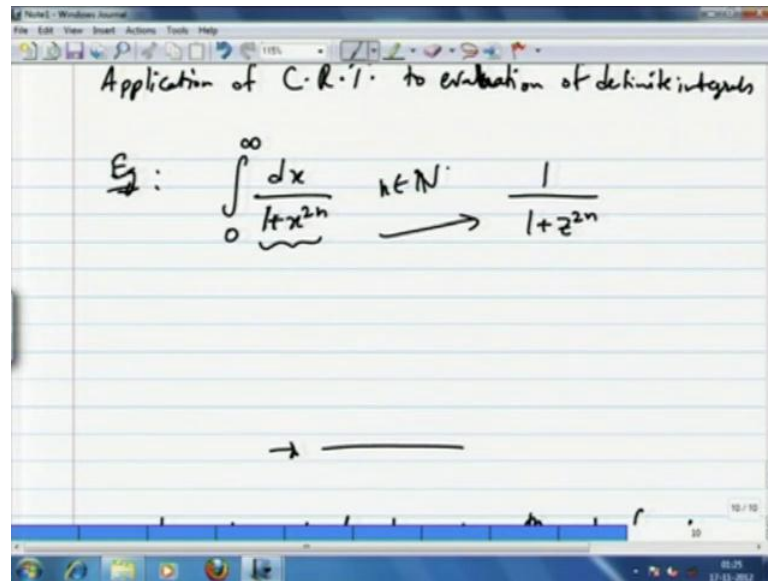 Note1 - Windows Journal
File Edit View Insert Actions Tools Help
115%
Application of C.R.T. to evaluation of definite integrals
Eg: ∫₀^∞ dx/(1+x^{2n}) n∈ℕ. → 1/(1+z^{2n})
10 / 10
10
01:25
17-11-2012